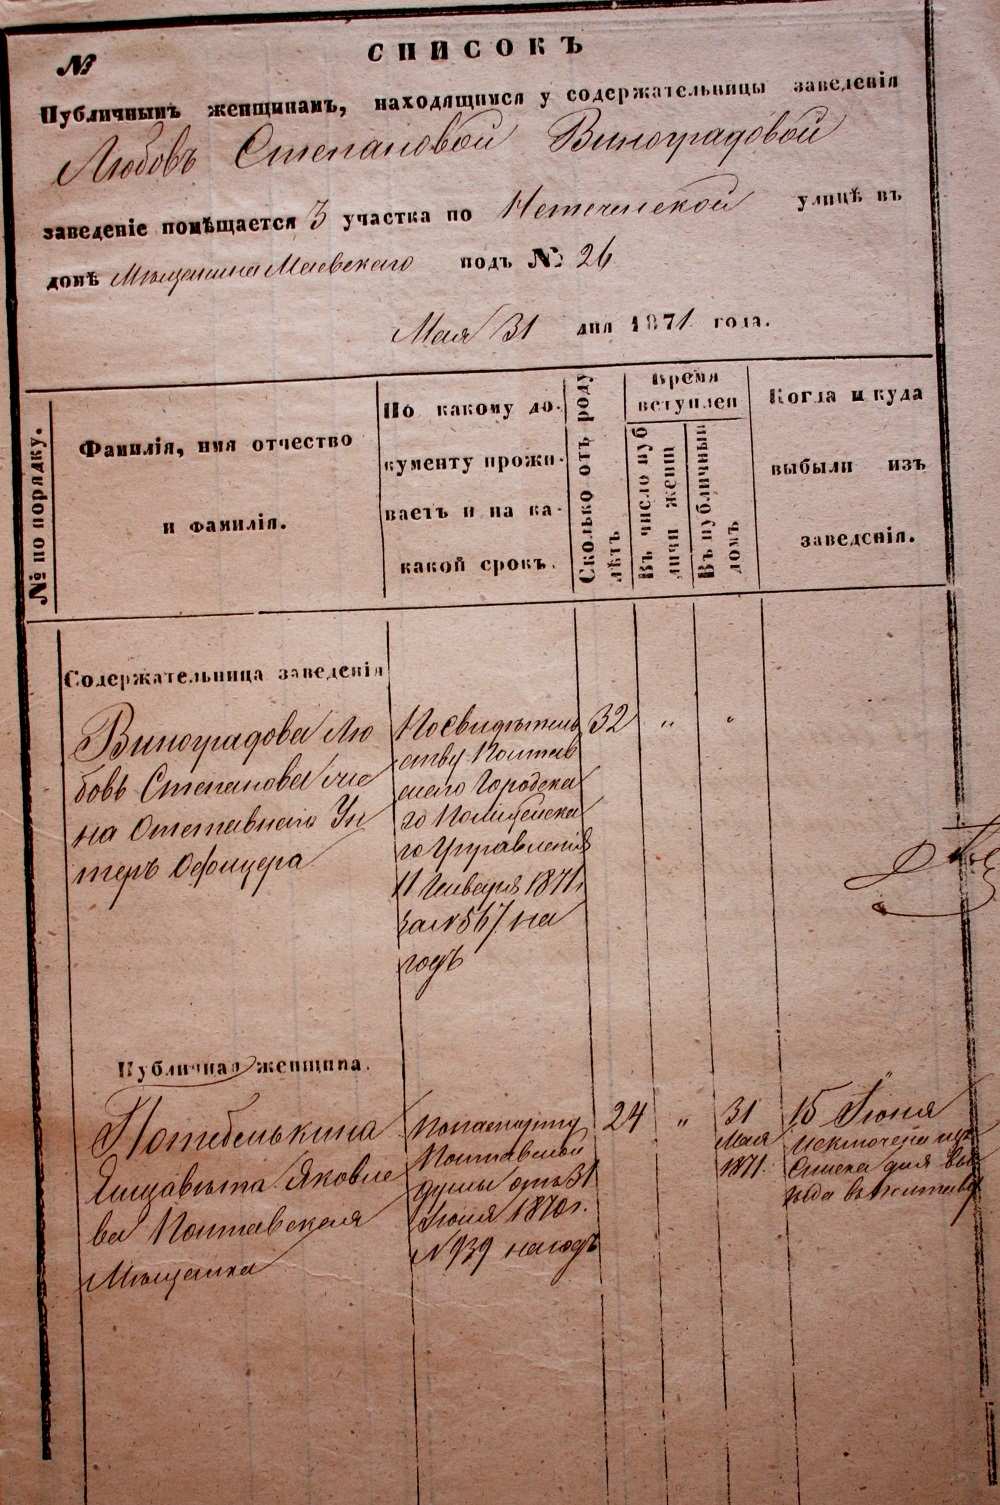 №
СПИСОКЪ
Публичнымъ женщинамъ, находящимся у содержательницы заведенія
Любовъ Степановой Виноградовой
заведеніе помѣщается 3 участка по Нетеченской улицѣ въ
домѣ Мѣщанина Маевскаго подъ № 26
Мая 31 дня 1871 года.
№ по порядку.
Фамилія, имя отчество
и фамилія.
По какому до-
кументу прожи-
ваетъ и на ка-
какой срокъ.
Сколько отъ роду
лѣтъ
Время
вступлен
Въ число пуб
личн женщ
Въ публичный
домъ
Когда и куда
выбыли изъ
заведенія.
Содержательница заведенія
Виноградова Лю
бовь Степанова же
на Отставнаго Ун
теръ Офицера
По свидѣтель
ству Полтав
скаго Городска
го Полицейска
го Управленія
11 Января 1871 г
за № 567 на
годъ
32
"
"
Публичная женщина.
Потебенькина
Елисавѣта Яковле
ва Полтавская
Мѣщанка
По паспорту
Полтавской
думы отъ 31
Іюля 1870 г.
№ 939 на годъ
24
"
31
Мая
1871.
15 Іюня
Исключена изъ
Списка для вы
ѣзда въ Полтаву